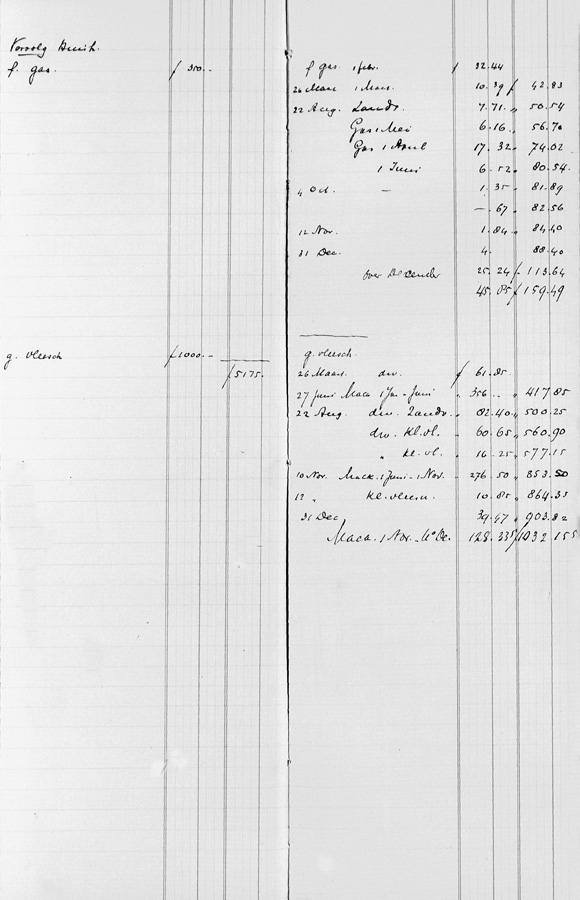 Vervolg Huish.
f. gas. f 350.-
g. vleesch f 1000.-
f 5175.
f gas. 1 febr. f 32.44
26 Maart 1 Maart. 10.39 f 42.83
22 Aug. Zandv. 7.71 " 50.54
Gas 1 Mei 6.16 " 56.70
Gas 1 April 17.32 " 74.02
1 Juni 6.52 " 80.54
4 Oct. - 1.35 " 81.89
-.67 " 82.56
12 Nov. 1.84 " 84.40
31 Dec. 4. 88.40
over December 25.24 f 113.64
45.85 f 159.49
g. vleesch.
26 Maart. div. f 61.85
27 Juni Maca 1 Jan - Juni " 356.- " 417 85
22 Aug. div. Zandv. " 82.40 " 500.25
div. kl. vl. " 60.65 " 560.90
" kl. vl. " 16.25 " 577.15
10 Nov. Maca. 1 Juni - 1 Nov. - 276.50 " 853.50
12 " kl. vleesch. " 10.85 " 864.35
31 Dec. 39.47 " 903.82
Maca. 1 Nov. - Dec. 128.335 f 1032 155